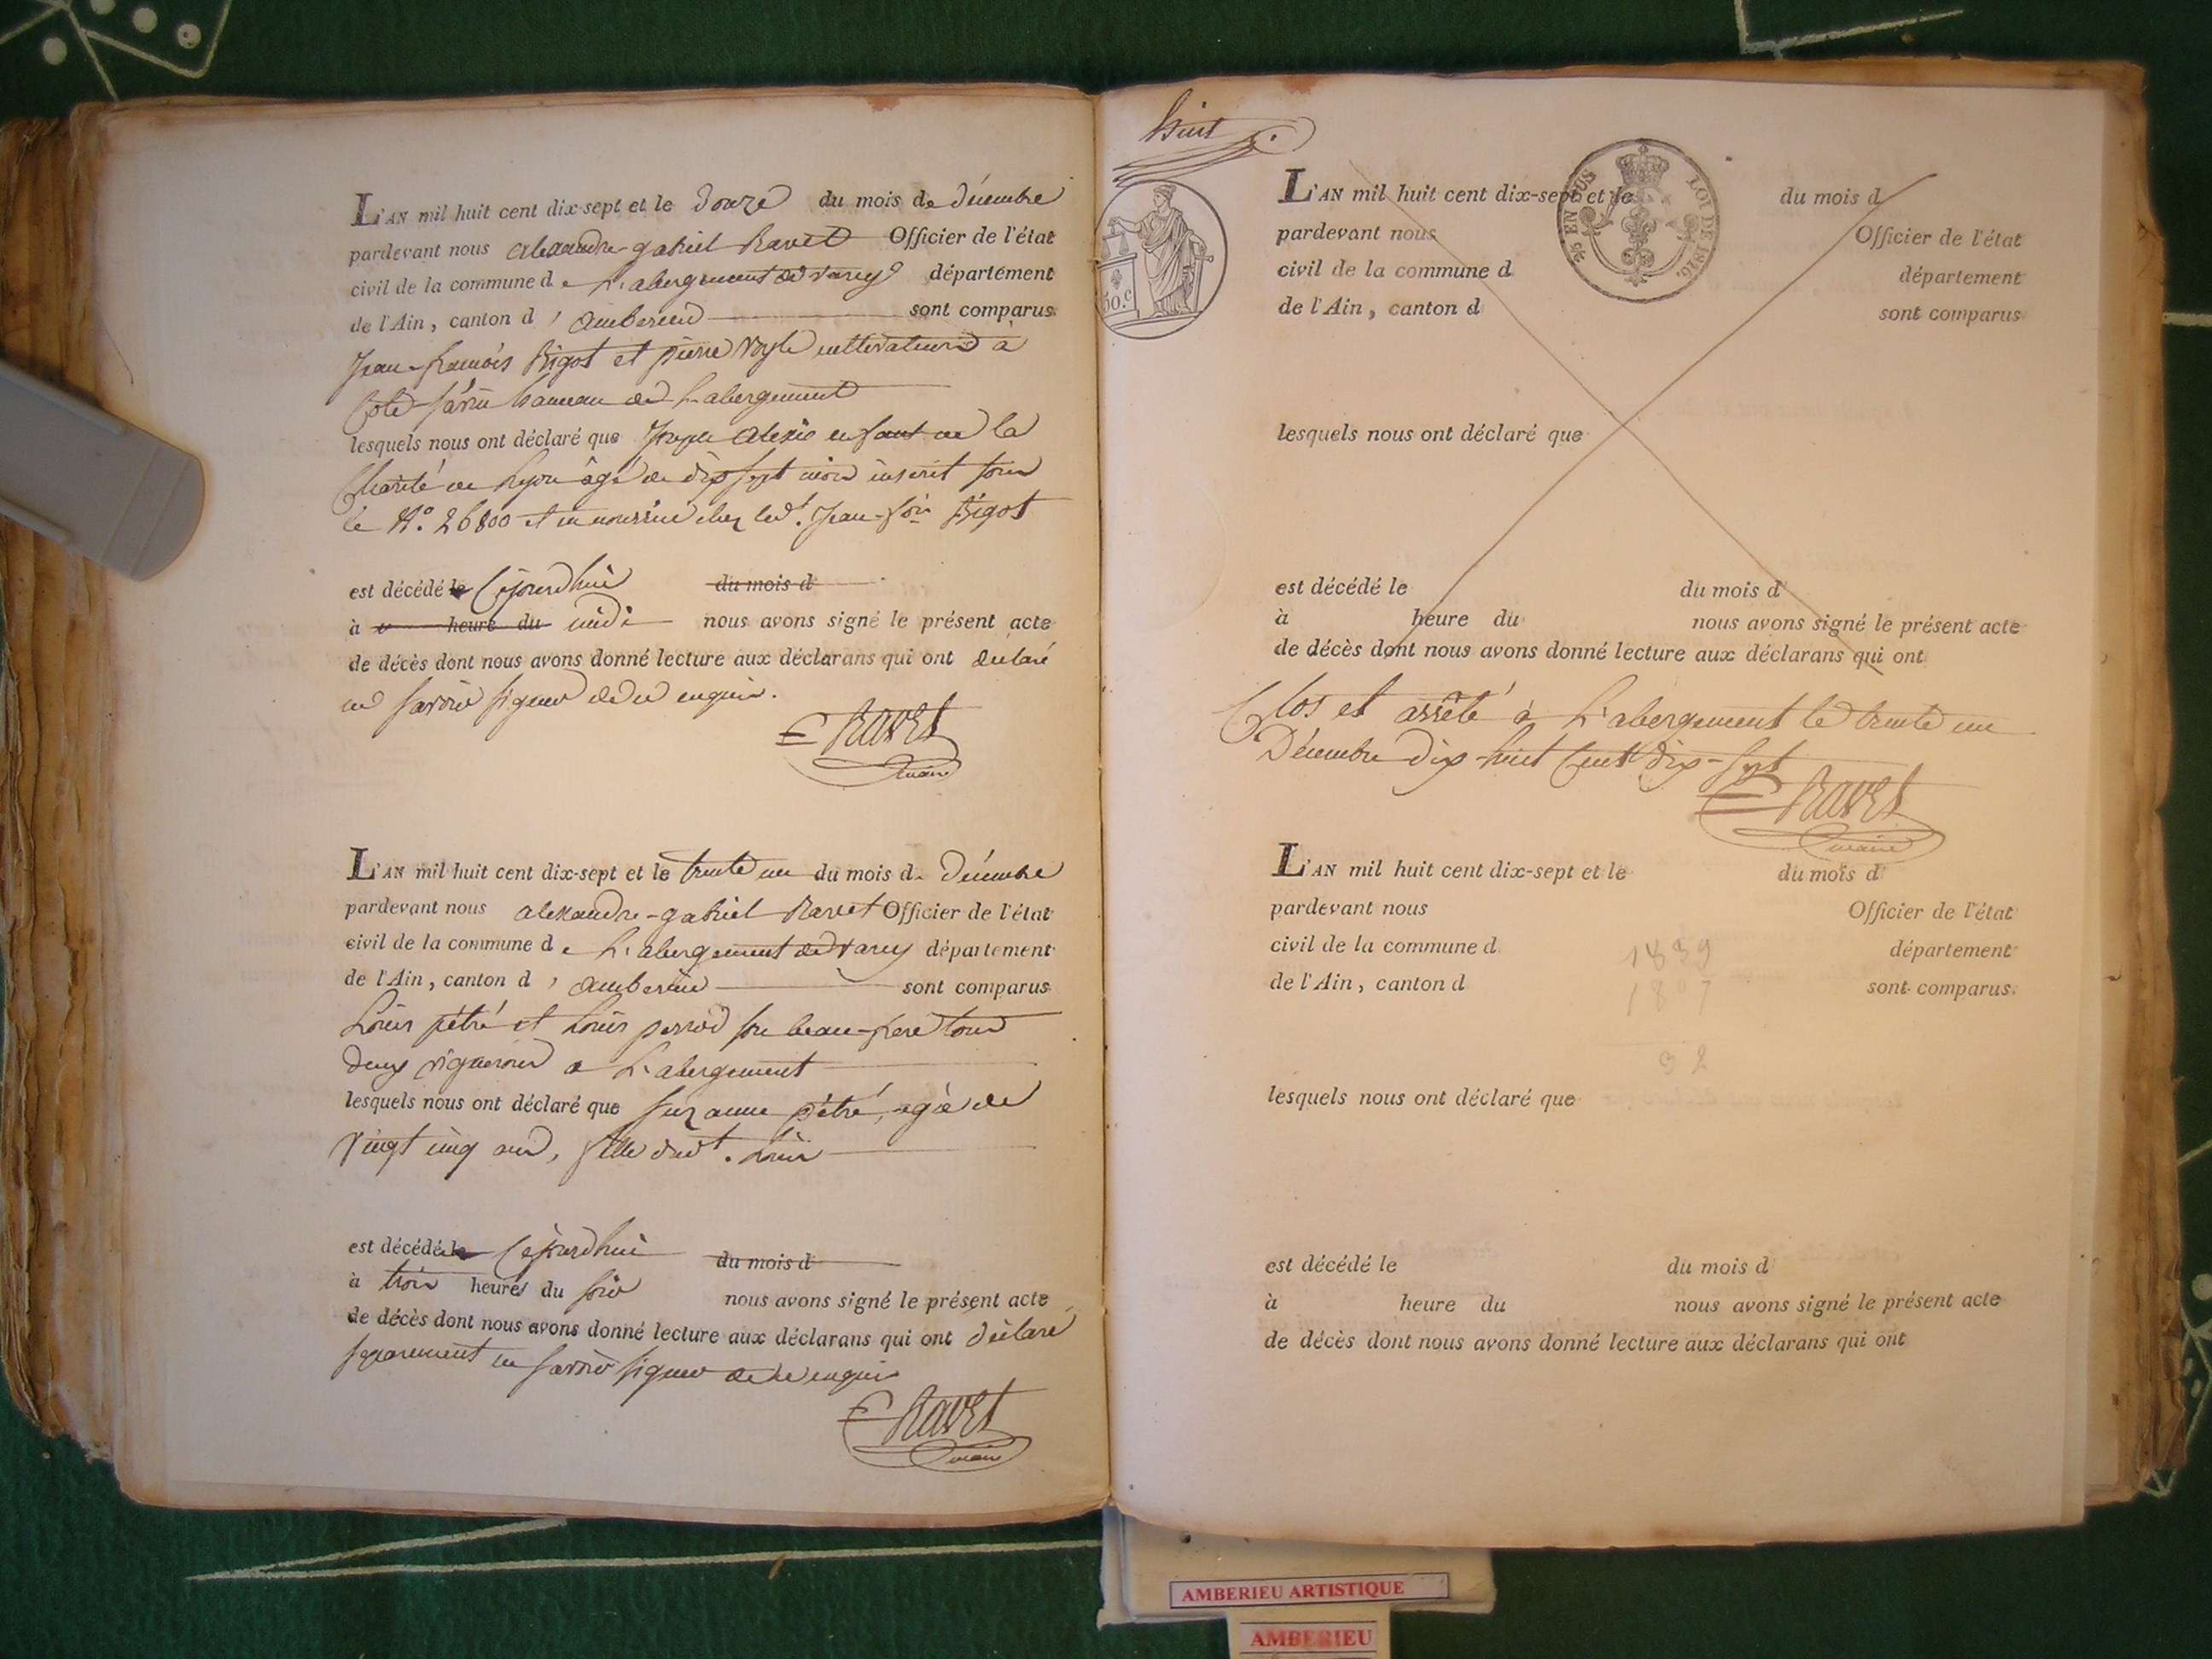 L'AN mil huit cent dix-sept et le Douze du mois de Décembre
pardevant nous alexandre-gabriel Ravet Officier de l'état
civil de la commune de L'abergement de varey département
de l'Ain, canton d'Amberieu sont comparus
Jean-françois Bigot et pierre cultivateurs à
Coté savin hameau de L'abergement
lesquels nous ont déclaré que Joseph Alexis enfant de la
Charité de Lyon âgé de dix sept mois inscrit sous
le N.o 26800 et en nourrice chez led.t Jean-fois Bigot
est décédé le Cejourdhui du mois d
à heure du midi nous avons signé le présent acte
de décès dont nous avons donné lecture aux déclarans qui ont déclaré
ne savoir signer de ce enquis.
Ravet
maire
L'AN mil huit cent dix-sept et le trente un du mois de Décembre
pardevant nous alexandre-gabriel Ravet Officier de l'état
civil de la commune de L'abergement de varey département
de l'Ain, canton d'Amberieu sont comparus
Louis pétré et Louis perrod son beau-frere tous
deux vignerons a L'abergement
lesquels nous ont déclaré que Suzanne pétré, agée de
Vingt cinq ans, fille dud.t Louis
est décédé le Cejourdhui du mois d
à trois heures du soir nous avons signé le présent acte
de décès dont nous avons donné lecture aux déclarans qui ont déclaré
separement ne savoir signer de ce enquis
Ravet
maire
huit
30.c
25 EN SUS
LOI DE 1816.
L'AN mil huit cent dix-sept et le du mois d
pardevant nous Officier de l'état
civil de la commune d département
de l'Ain, canton d sont comparus
lesquels nous ont déclaré que
est décédé le du mois d
à heure du nous avons signé le présent acte
de décès dont nous avons donné lecture aux déclarans qui ont
Clos et arrêté à L'abergement le trente un
Décembre dix-huit Cent dix-sept
Ravet
maire
L'AN mil huit cent dix-sept et le du mois d
pardevant nous Officier de l'état
civil de la commune d département
1839
de l'Ain, canton d sont comparus
1807
32
lesquels nous ont déclaré que
est décédé le du mois d
à heure du nous avons signé le présent acte
de décès dont nous avons donné lecture aux déclarans qui ont
AMBERIEU ARTISTIQUE
AMBERIEU